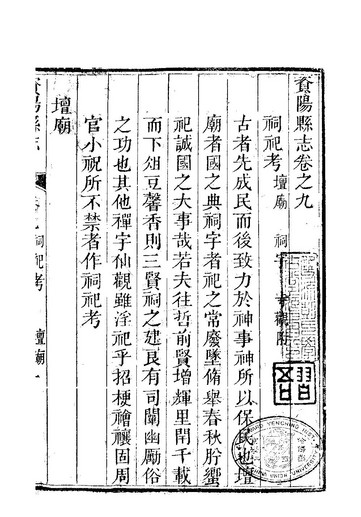 資陽縣志卷之九
祠祀考 壇廟 祠宇 寺觀附
古者先成民而後致力於神事神所以保民也壇
廟者國之典祠宇者祀之常廢墜脩舉春秋肸蠁
祀誠國之大事哉若夫往哲前賢增輝里閈千載
而下俎豆馨香則三賢祠之建良有司闡幽厲俗
之功也其他禪宇仙觀雖淫祀乎招梗禬禳固周
官小祝所不禁者作祠祀考
壇廟
資陽縣志 卷九 祠祀考 壇廟 一